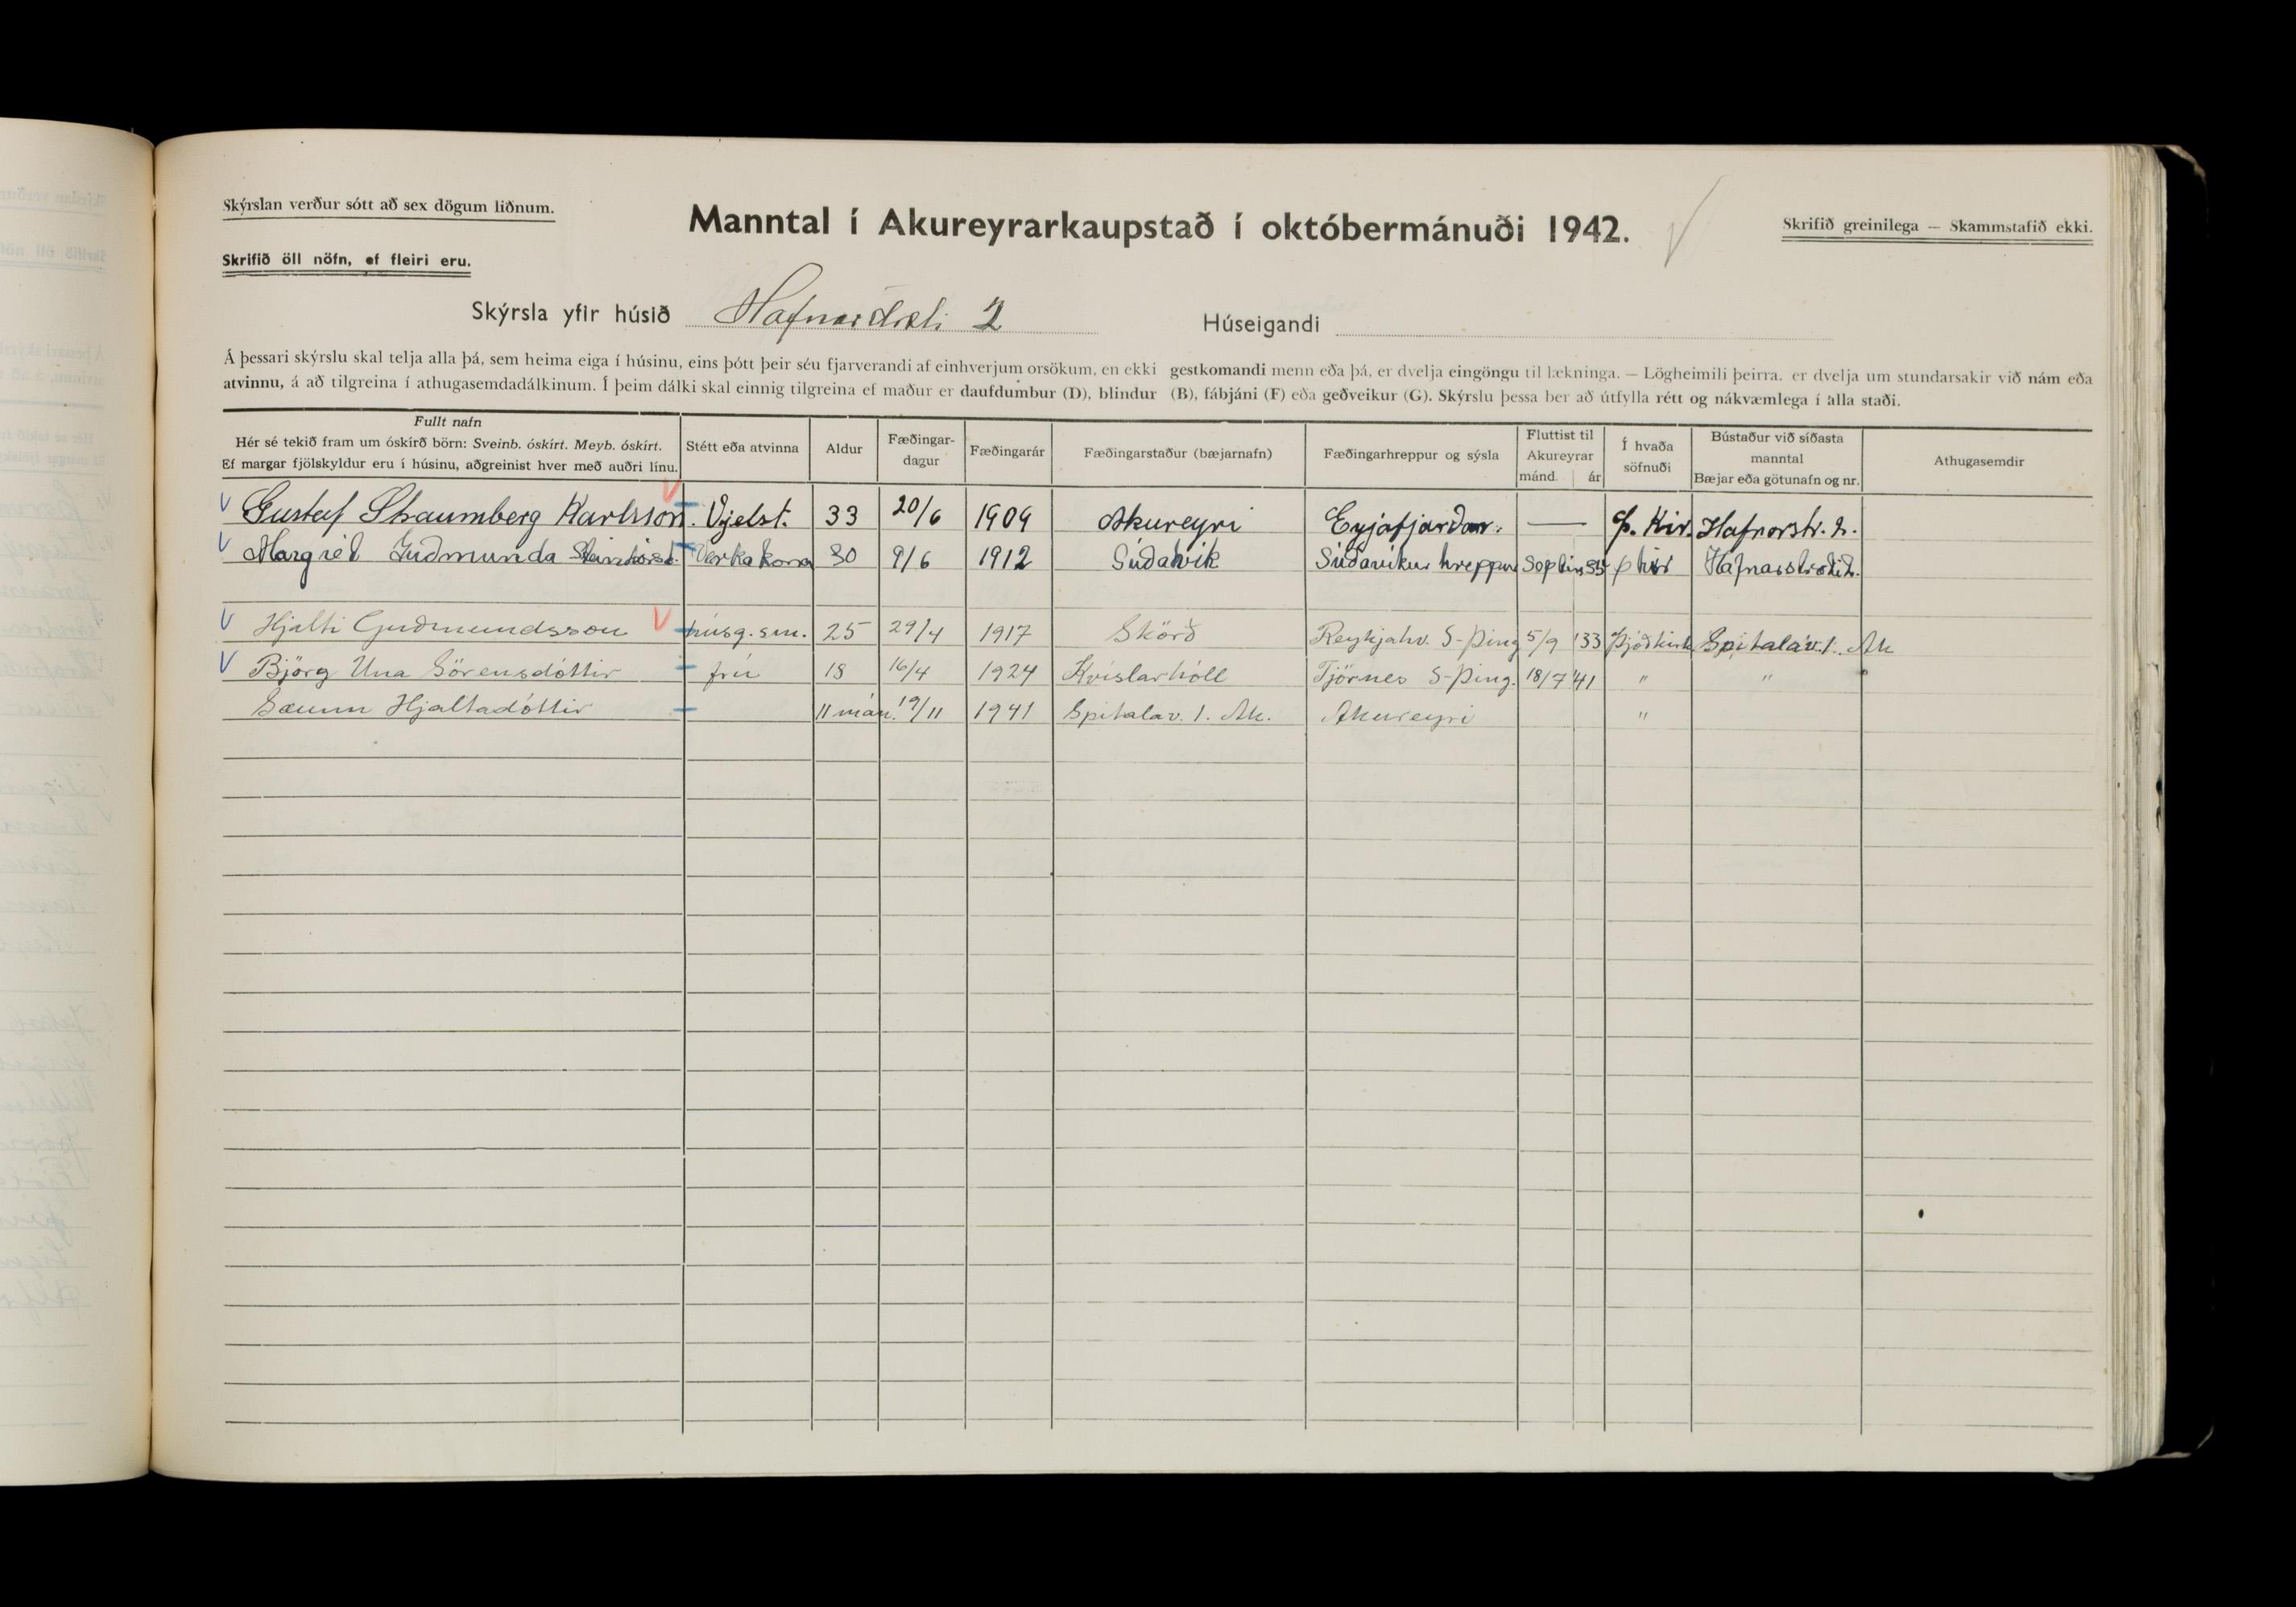 Skýrslan verður sótt að sex dögum liðnum.
Manntal í Akureyrarkaupstað í októbermánuði 1942.
Skrifið greinilega — Skammstafið ekki.
Skrifið öll nöfn, ef fleiri eru.
Skýrsla yfir húsið Hafnarstræti 2 Húseigandi
Á þessari skýrslu skal telja alla þá, sem heima eiga í húsinu, eins þótt þeir séu fjarverandi af einhverjum orsökum, en ekki gestkomandi menn eða þá, er dvelja eingöngu til lækninga. — Lögheimili þeirra, er dvelja um stundarsakir við nám eða
atvinnu, á að tilgreina í athugasemdadálkinum. Í þeim dálki skal einnig tilgreina ef maður er daufdumbur (D), blindur (B), fábjáni (F) eða geðveikur (G). Skýrslu þessa ber að útfylla rétt og nákvæmlega í alla staði.
Fullt nafn
Hér sé tekið fram um óskírð börn: Sveinb. óskírt. Meyb. óskírt.
Ef margar fjölskyldur eru í húsinu, aðgreinist hver með auðri línu.
Stétt eða atvinna
Aldur
Fæðingar-
dagur
Fæðingarár
Fæðingarstaður (bæjarnafn)
Fæðingarhreppur og sýsla
Fluttist til
Akureyrar
mánd. ár
Í hvaða
söfnuði
Bústaður við síðasta
manntal
Bæjar eða götunafn og nr.
Athugasemdir
Gustaf Straumberg Karlsson. Vjelst. 33 20/6 1909 Akureyri Eyjafjarðar. — Þ. Kir. Hafnarstr. 2.
Margrét Guðmunda Verkakona 30 9/6 1912 Súðavik Súðavikur hreppur 35 Hafnarstræti 2.
Hjalti Guðmundsson húsg.sm. 25 29/4 1917 Skörð Reykjahv. S-Þing 5/9 '33 Þjóðkirk Spítalav. 1. Ak
Björg Una Sörensdóttir frú 18 16/4 1924 Kvíslarhóll Tjörnes S-Þing. 18/7 '41 " "
Sæunn Hjaltadóttir 11 mán. 19/11 1941 Spítalav. 1. Ak. Akureyri "